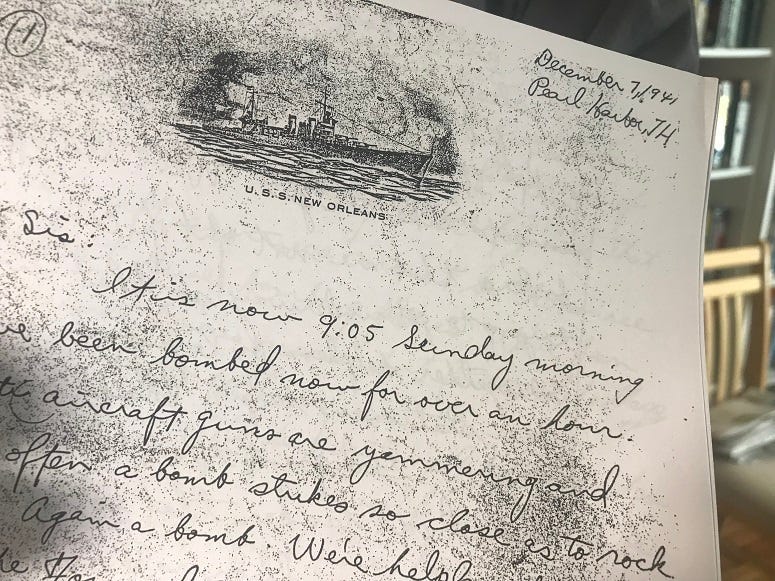 11
December 7, 1941
Pearl Harbor, TH
U.S.S. NEW ORLEANS
Sis:
It is now 9:05 Sunday morning
ve been bombed now for over an hour.
aircraft guns are yammering and
often a bomb strikes so close as to rock
Again a bomb. We're help